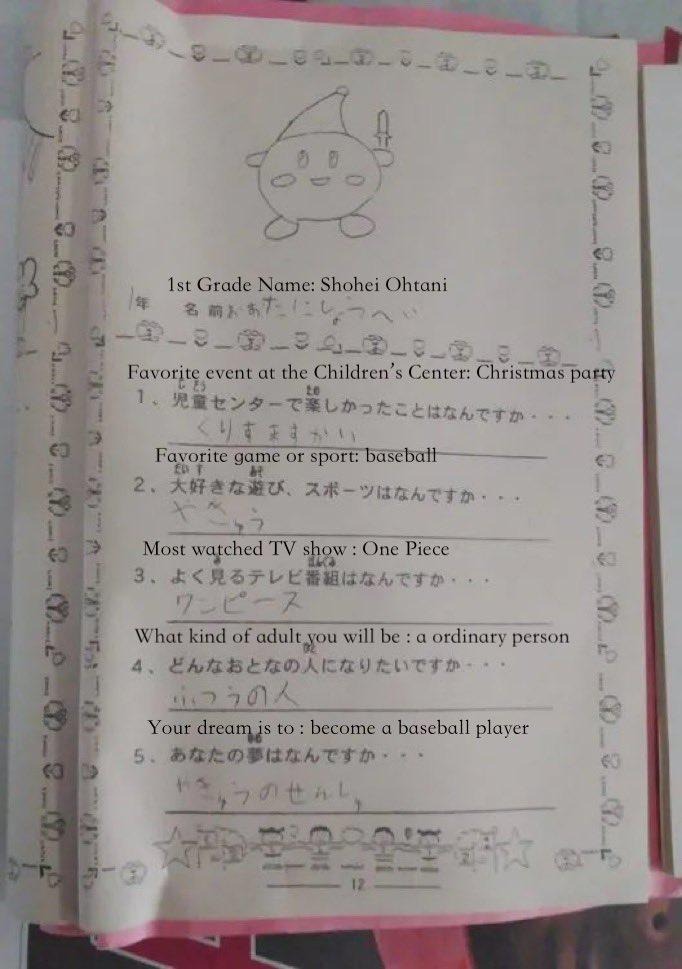 1st Grade Name: Shohei Ohtani
1年 名前おおたにしょうへい
Favorite event at the Children's Center: Christmas party
じどう たの
1、児童センターで楽しかったことはなんですか・・・
くりすますかい
Favorite game or sport: baseball
だいす あそ
2、大好きな遊び、スポーツはなんですか・・・
やきゅう
Most watched TV show : One Piece
み ばんぐみ
3、よく見るテレビ番組はなんですか・・・
ワンピース
What kind of adult you will be : a ordinary person
ひと
4、どんなおとなの人になりたいですか・・・
ふつうの人
Your dream is to : become a baseball player
ゆめ
5、あなたの夢はなんですか・・・
やきゅうのせんしゅ
12